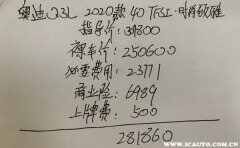 奥迪Q3L 2020款 40 TFSI 时尚致雅
指导价: 31800
裸车价: 250600
必要费用: 23771
商业险: 6989
上牌费: 500
281860
www.icauto.com.cn